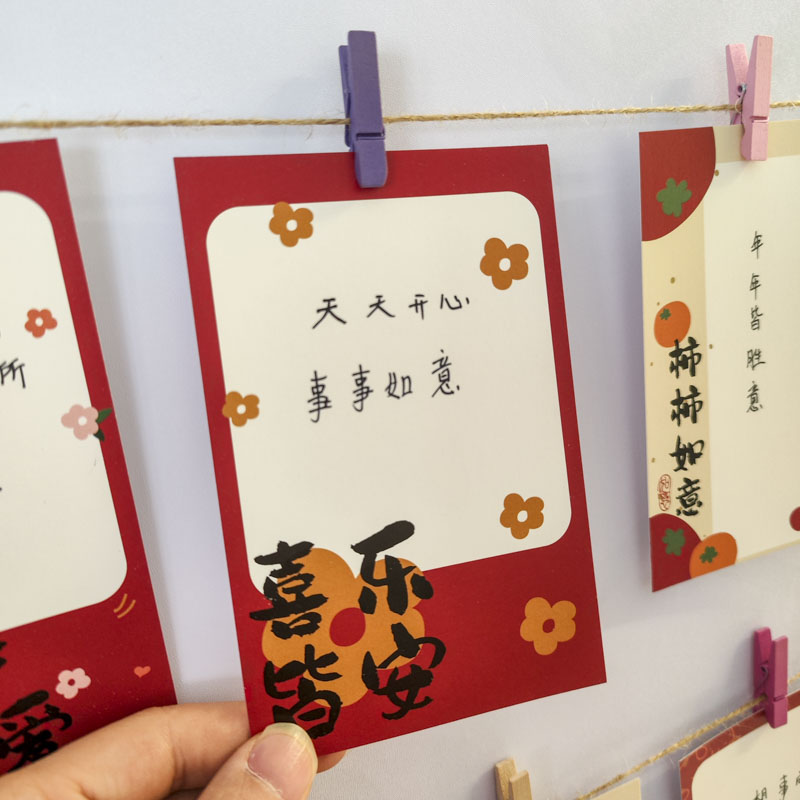 所
爱
天天开心
事事如意
喜乐
皆安
年年皆胜意
柿柿如意